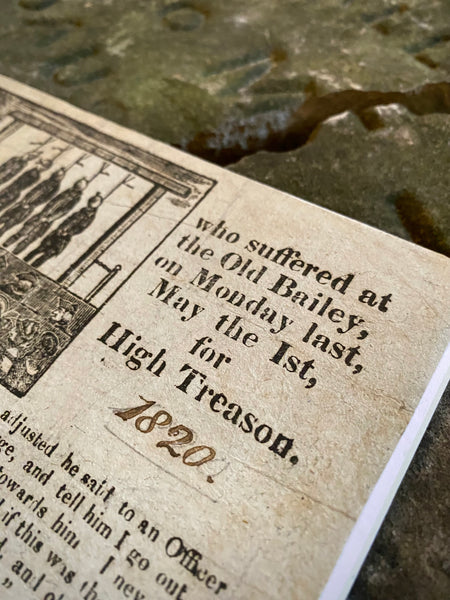 who suffered at
the Old Bailey,
on Monday last,
May the 1st,
for
High Treason.
1820.
adjusted he said to an Officer
and tell him I go out
towards him I never
if this was the
and